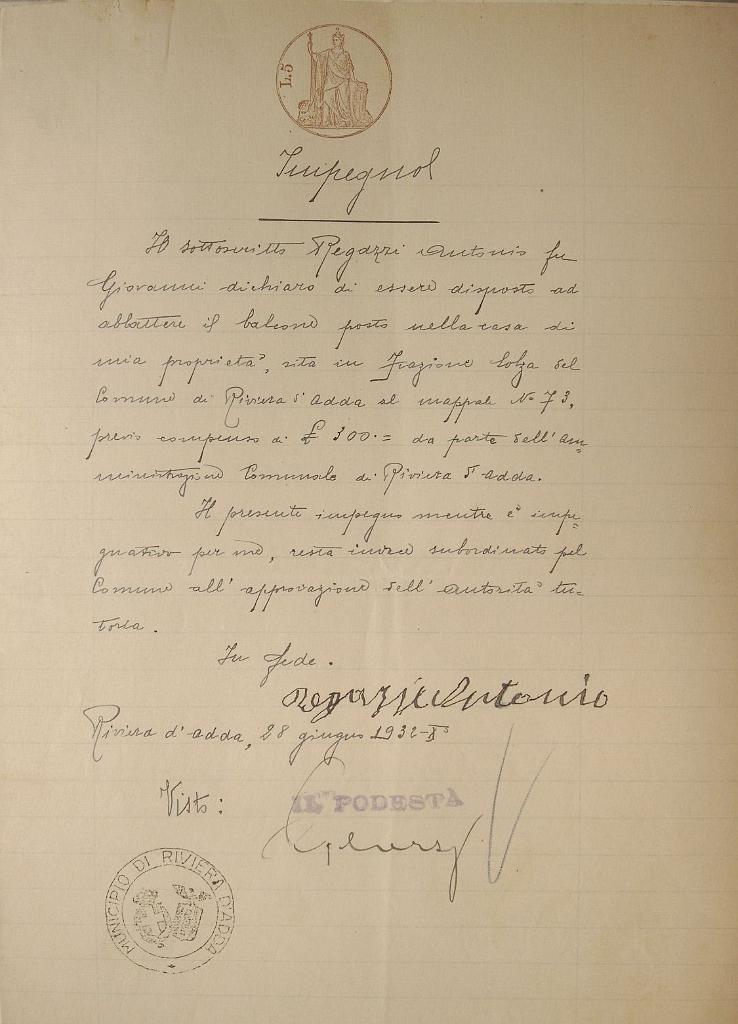 L. 5
Impegno
Io sottoscritto Regazzi Antonio fu
Giovanni dichiaro di essere disposto ad
abbattere il balcone posto nella casa di
mia proprietà, sita in Frazione Solza del
Comune di Riviera d'Adda al mappale No 73,
previo compenso di £ 300.= da parte dell'am=
ministrazione Comunale di Riviera d'Adda.
Il presente impegno mentre è impe=
gnativo per me, resta invece subordinato pel
Comune all'approvazione dell'Autorità tu=
toria.
In fede.
Regazzi Antonio
Riviera d'Adda, 28 giugno 1932-Xo
Visto:
IL PODESTÀ
MUNICIPIO DI RIVIERA D'ADDA